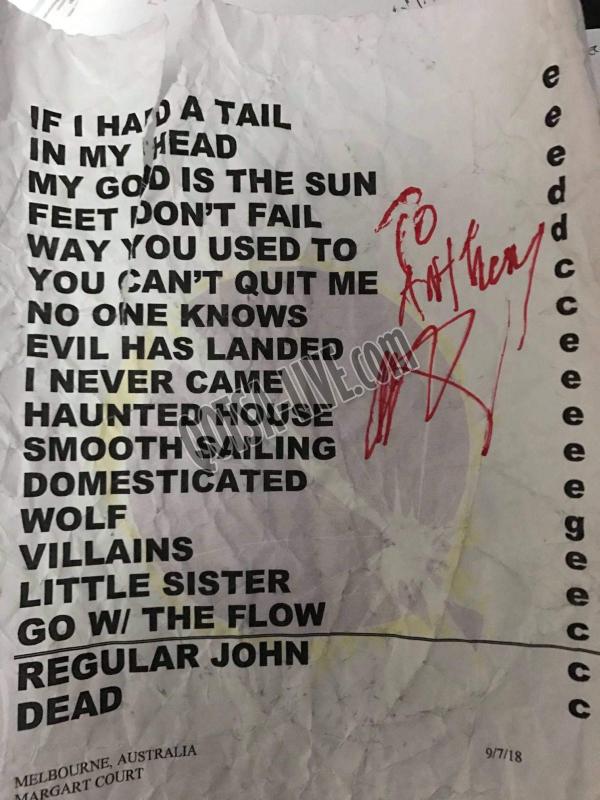 IF I HAD A TAIL e
IN MY HEAD e
MY GOD IS THE SUN e
FEET DON'T FAIL d
WAY YOU USED TO d
YOU CAN'T QUIT ME c
NO ONE KNOWS c
EVIL HAS LANDED e
I NEVER CAME e
HAUNTED HOUSE e
SMOOTH SAILING e
DOMESTICATED e
WOLF g
VILLAINS e
LITTLE SISTER e
GO W/ THE FLOW c
REGULAR JOHN c
DEAD c
TO
Anthony
QOTSA-LIVE.com
MELBOURNE, AUSTRALIA
MARGART COURT
9/7/18